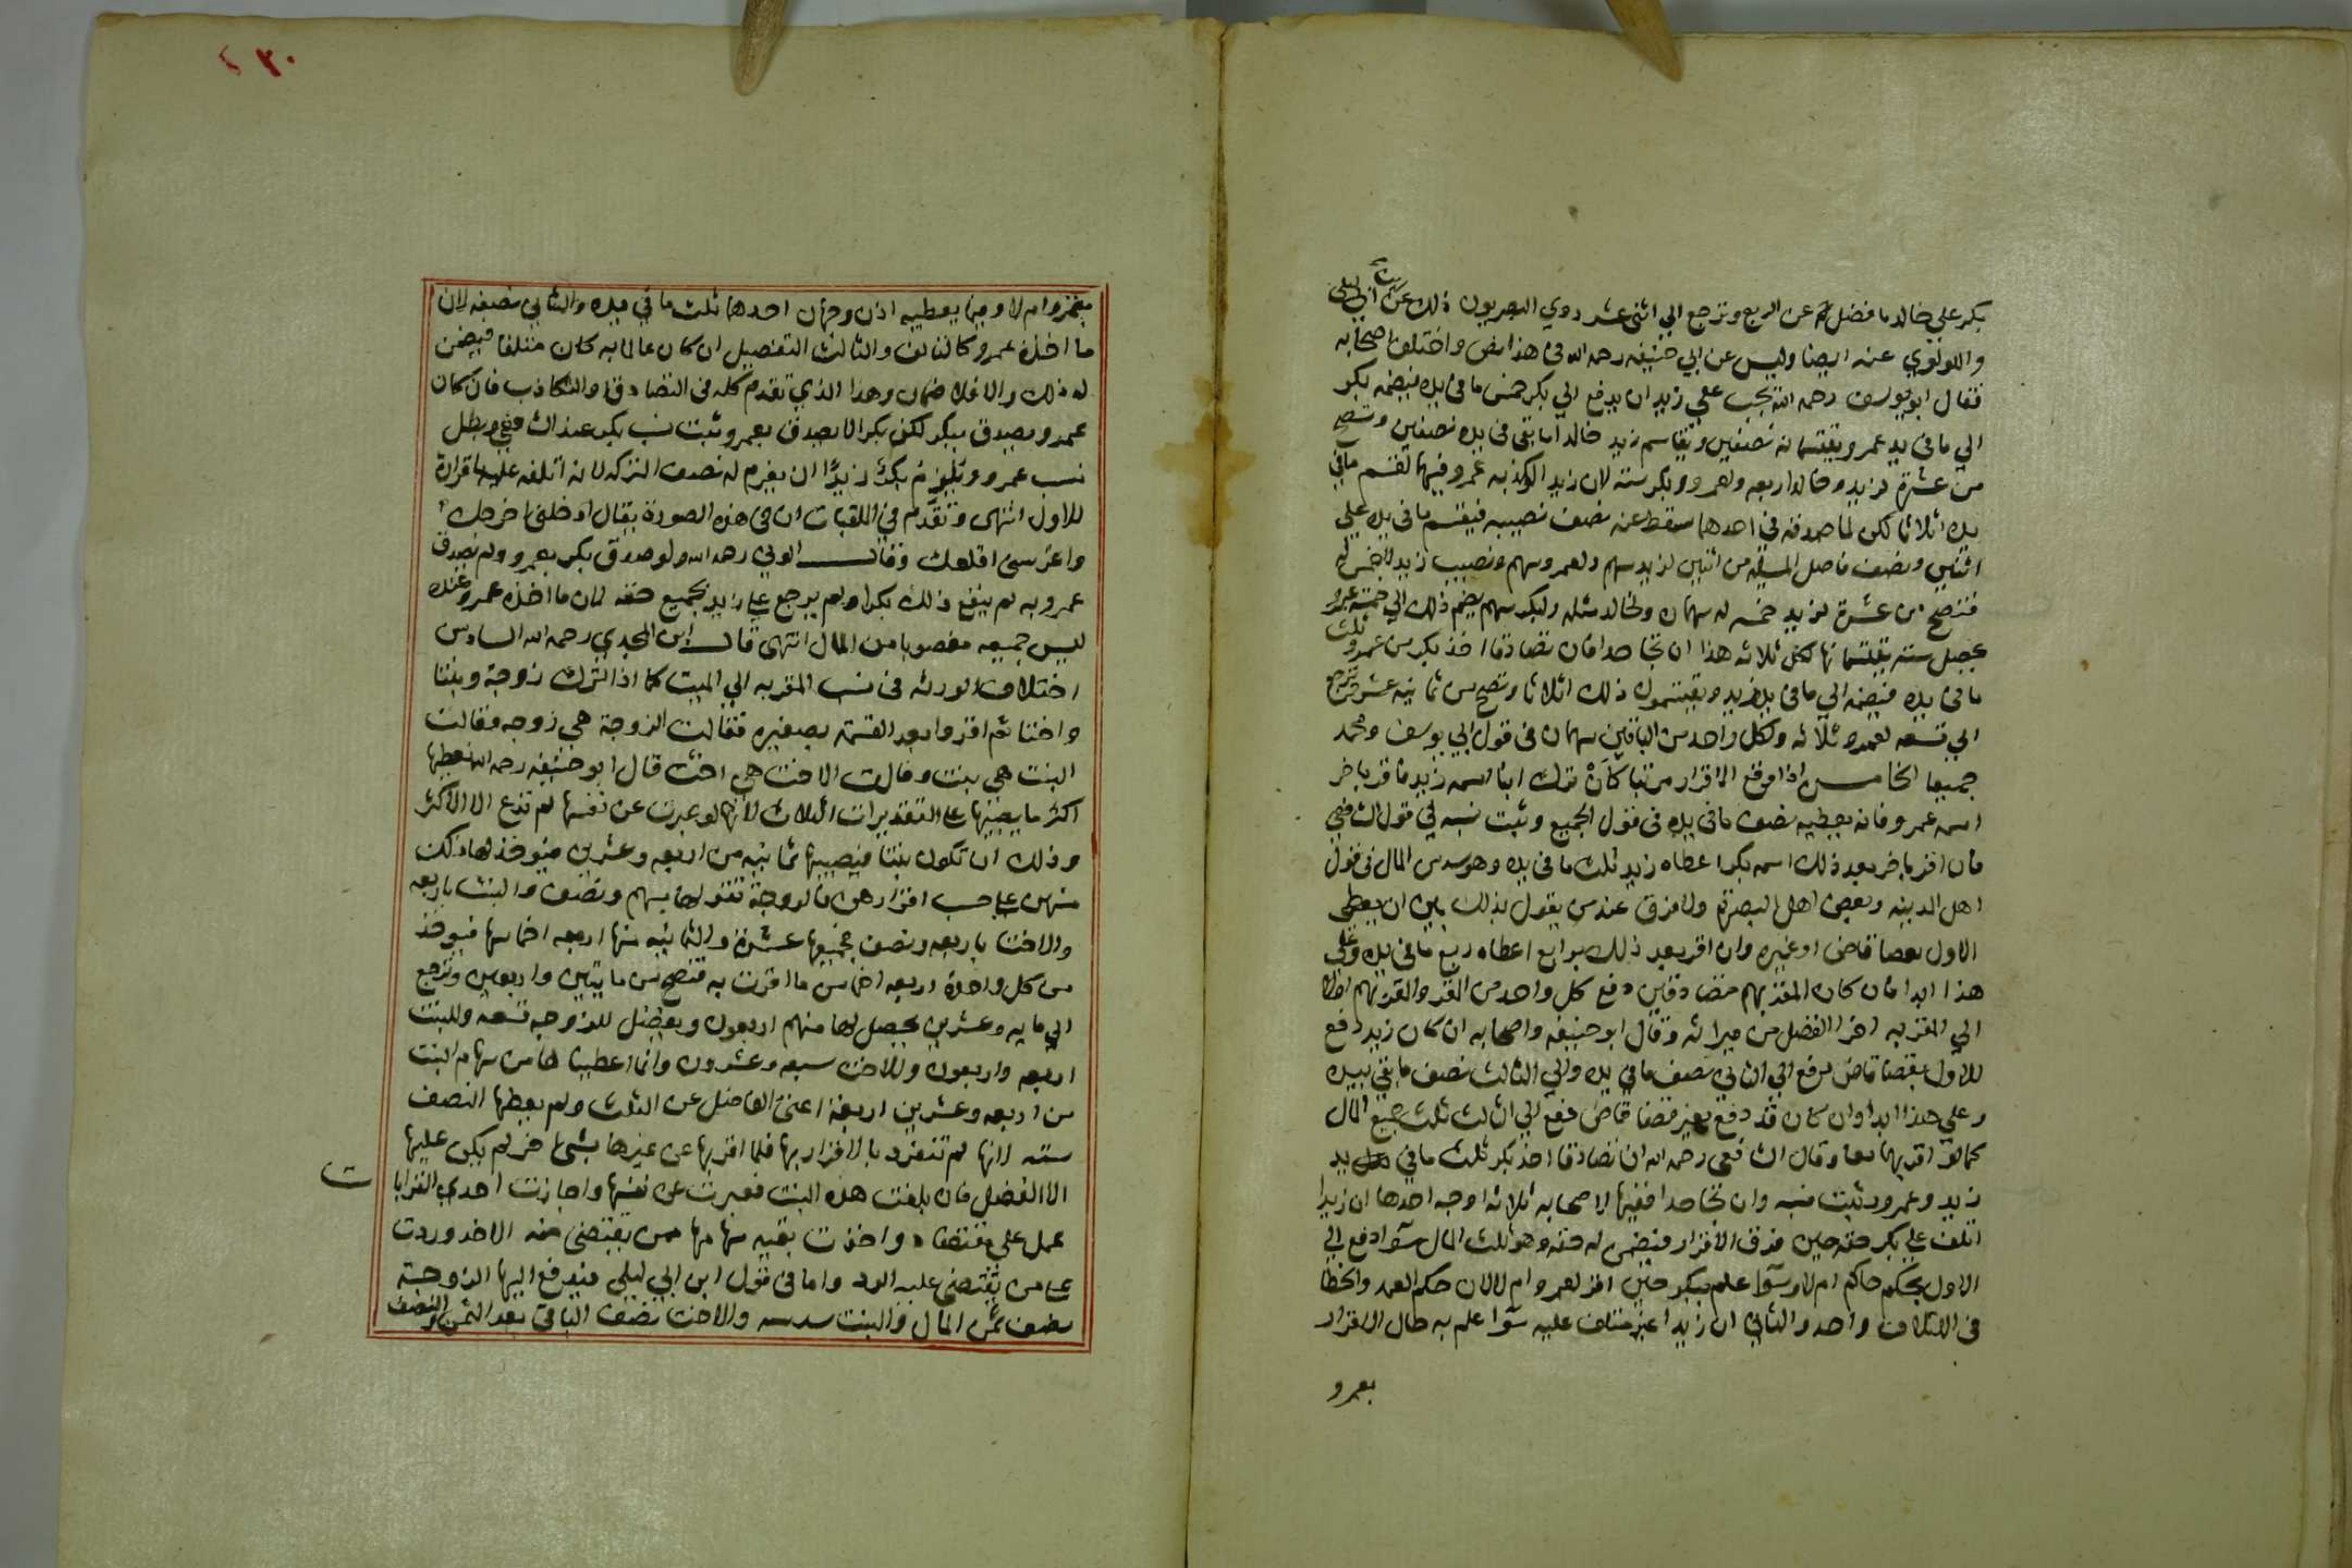 بكر علي خالد ما فضل عن الربع وترجع الي اثني عشر روي البصريون ذلك عن ابن ابي ليلي
واللولوي عنه ايضا وليس عن ابي حنيفه رحمه الله في هذا نص واختلف اصحابه
فقال ابو يوسف رحمه الله يجب علي زيد ان يدفع الي بكر خمس ما في يده فيضمه بكر
الي ما في يد عمر ويقتسمانه نصفين ويقاسم زيد خالدا ما بقي في يده نصفين وتصح
من عشرة لزيد وخالد اربعه ولعمرو وبكر سته لان زيدا لو كذبه عمرو فيهما لقسم ما في
يده اثلاثا لكن لما صدقه في احدهما سقط عنه نصف نصيبه فيقسم ما في يده علي
اثنين ونصف فاصل المسيله من اثنين لزيد سهم ولعمرو سهم ونصيب زيد لا خمس له
فتصح من عشرة لزيد خمسه له سهمان ولخالد مثله ولبكر سهم يضم ذلك الي خمسة عمرو
يحصل سته يقتسمانها لكل ثلاثه هذا ان تجاحدا فان تصادقا اخذ بكر من عمرو ثلث
ما في يده فيضمه الي ما في يد زيد ويقتسمون ذلك اثلاثا وتصح من ثمانيه عشر وترجع
الي تسعه لعمرو ثلاثه ولكل واحد من الباقين سهمان في قول ابي يوسف ومحمد
جميعا الخامس اذا وقع الاقرار مرتبا كان ترك ابنا اسمه زيد فاقر باخر
اسمه عمرو فانه يعطيه نصف ما في يده في قول الجميع وثبت نسبه في قول الشافعي
فان اقر باخر بعد ذلك اسمه بكر اعطاه زيد ثلث ما في يده وهو سدس المال في قول
اهل المدينه وبعض اهل البصرة ولا فرق عند من يقول بذلك بين ان يعطي
الاول بقضا قاضي او غيره وان اقر بعد ذلك برابع اعطاه ربع ما في يده وعلي
هذا ابدا فان كان المقر بهم متصادقين دفع كل واحد من المقر والمقر بهم
الي المقر به اخرا الفضل من ميراثه وقال ابو حنيفه واصحابه ان كان زيد دفع
للاول بقضا قاض دفع الي الثاني نصف ما في يده والي الثالث نصف ما بقي بيده
وعلي هذا ابدا وان كان قد دفع بغير قضا قاض دفع الي الثالث ثلث جميع المال
كما لو اقر بهما معا وقال الشافعي رحمه الله ان تصادقا اخذ بكر ثلث ما في يد
زيد وعمرو وثبت نسبه وان تجاحدا ففيها لاصحابه ثلاثه اوجه احدها ان زيدا
اتلف علي بكر حقه حين فرق الاقرار فيضمن له حقه وهو ثلث المال سوا دفع الي
الاول بحكم حاكم ام لا وسوا علم ببكر حين اقر لعمرو ام لا لان حكم العمد والخطا
في الاتلاف واحد والثاني ان زيدا غير متلف عليه سوا علم به حال الاقرار
بعمرو
٢٠
بعمرو ام لا وفيما يعطيه اذن وجهان احدهما ثلث ما في يده والثاني نصفه لان
ما اخذه عمرو كالتالف والثالث التفصيل ان كان عالما به كان متلفا فيضمن
له ذلك والا فلا ضمان وهذا الذي تقدم كله في التصادق والتكاذب فان كان
عمرو يصدق ببكر لكن بكر لا يصدق بعمرو ثبت نسب بكر عند الشافعي وبطل
نسب عمرو ويلزم زيدا ان يغرم له نصف التركه لانه اتلفه عليه باقراره
للاول انتهي وتقدم في الملقبات ان في هذه الصورة يقال ادخلني اخرجك
واغرسني اقلعك وقال الوني رحمه الله ولو صدق بكر بعمرو ولم يصدق
عمرو به لم ينفع ذلك بكرا ولم يرجع علي زيد بجميع حقه لان ما اخذه عمرو عنده
ليس جميعه مغصوبا من المال انتهي قال ابن المجدي رحمه الله السادس
اختلاف الورثه في نسب المقر به الي الميت كما اذا ترك زوجة وبنتا
واختا ثم اقروا بعد القسمة بصغيره فقالت الزوجة هي زوجه وقالت
البنت هي بنت وقالت الاخت هي اخت قال ابو حنيفه رحمه الله نعطيها
اكثر ما يصيبها علي التقديرات الثلاث لانها لو عبرت عن نفسها لم تدع الا الاكثر
وذلك ان تكون بنتا فيصيبها ثمانيه من اربعه وعشرين فيوخذ لها ذلك
منهن علي حسب اقرارهن فالزوجة تقر لها بسهم ونصف والبنت باربعه
والاخت باربعه ونصف جميعها عشرة والثمانيه منها اربعه اخماسها فيوخذ
من كل واحدة اربعه اخماس ما اقرت به فتصح من مايتين واربعين وترجع
الي مايه وعشرين يحصل لها منهم اربعون ويفضل للزوجه تسعه وللبنت
اربعه واربعون وللاخت سبعه وعشرون وانما اعطينا لها من سهام البنت
من اربعه وعشرين اربعة اعني الفاضل عن الثلث ولم يعطها النصف
سته لانها لم تنفرد بالاقرار بها فلما اقر بها عن غيرها بشي اخر لم يكن عليها
الا الفضل فان بلغت هذه البنت فعبرت عن نفسها واجازت احدي القرابات
عمل علي مقتضاه واخذت بقيه سهامها ممن يقتضي منه الاخذ وردت
علي من يقتضي عليه الرد واما في قول ابن ابي ليلي فيدفع اليها الزوجة
نصف ثمن المال والبنت سدسه والاخت نصف الباقي بعد الثمن والنصف